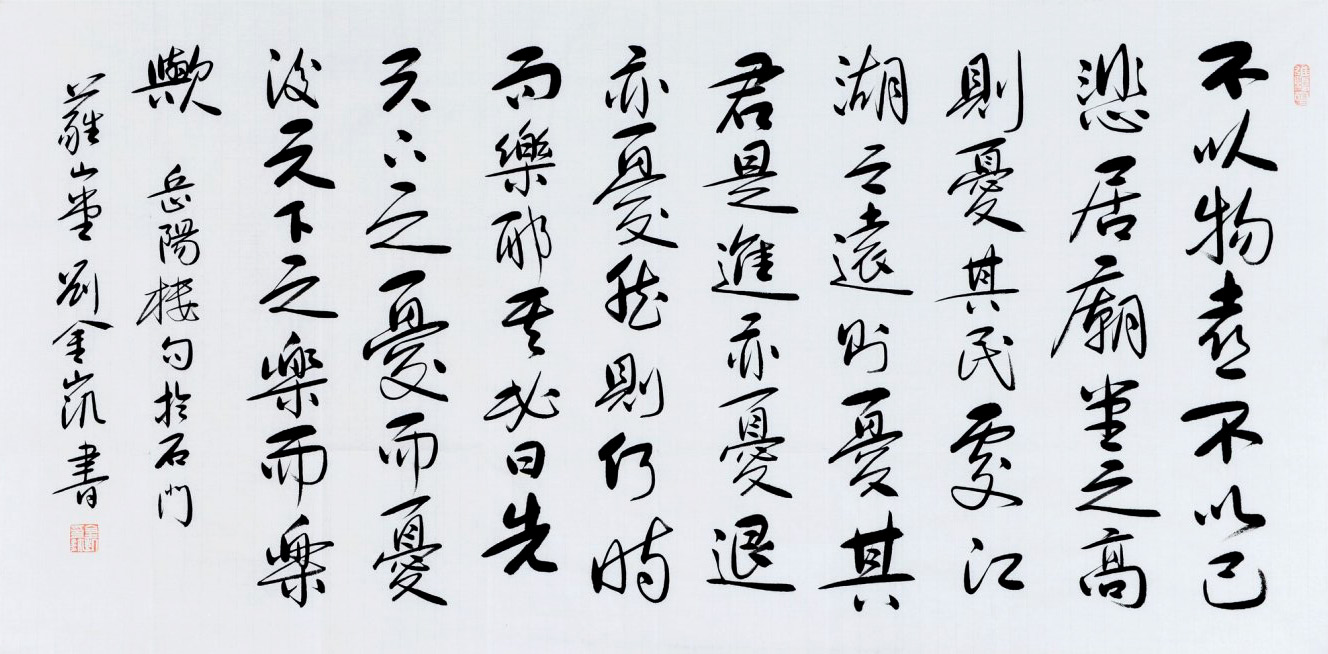 不以物喜不以己
悲居廟堂之高
則憂其民處江
湖之遠則憂其
君是進亦憂退
亦憂然則何時
而樂耶其必曰先
天下之憂而憂
後天下之樂而樂
歟 岳陽楼句於石門
山堂劉金凱書